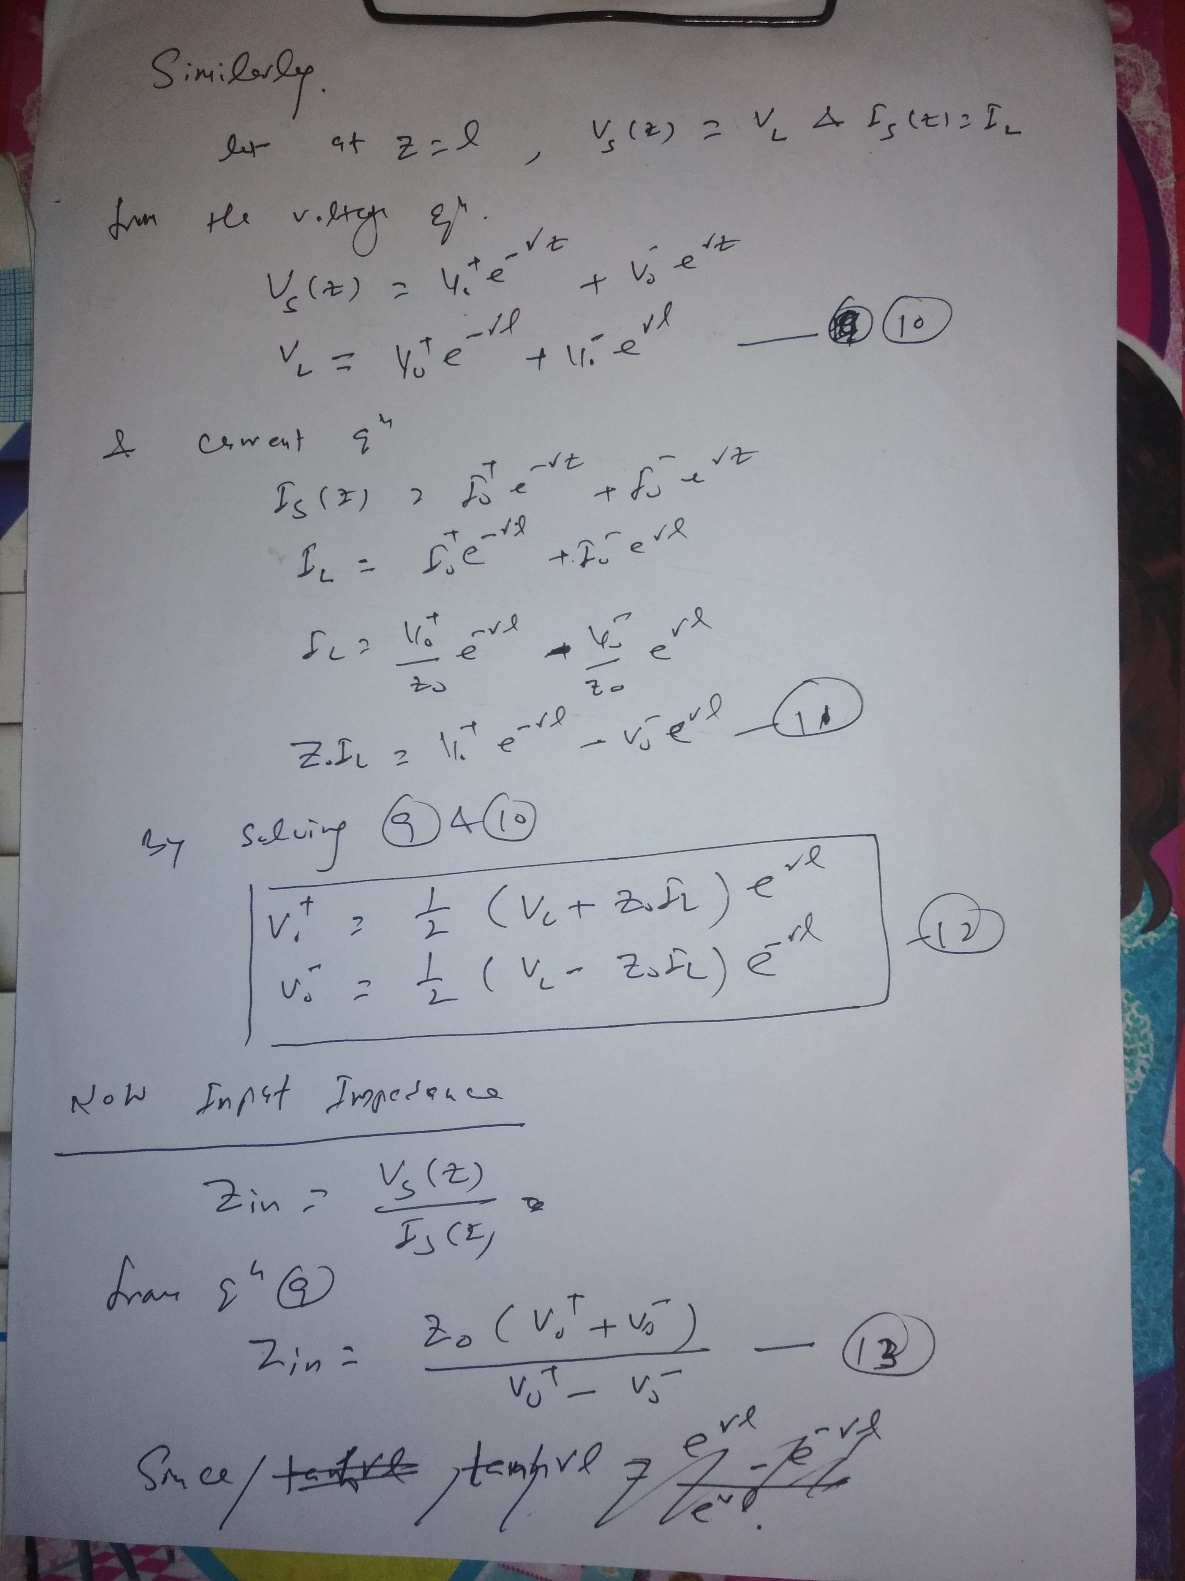 Similarly.
let at z = l , Vs(z) = VL & Is(z) = IL
from the voltage eqn.
Vs(z) = V0+ e^-γz + V0- e^γz
VL = V0+ e^-γl + V0- e^γl — (10)
& current eqn
Is(z) = I0+ e^-γz + I0- e^γz
IL = I0+ e^-γl + I0- e^γl
IL = V0+/Z0 e^-γl - V0-/Z0 e^γl
Z0IL = V0+ e^-γl - V0- e^γl — (11)
By solving (9) & (10)
V0+ = 1/2 (VL + Z0IL) e^γl
V0- = 1/2 (VL - Z0IL) e^-γl — (12)
Now Input Impedance
Zin = Vs(z)/Is(z)
from eqn (9)
Zin = Z0 (V0+ + V0-) / V0+ - V0- — (13)
Since tanhγl = e^γl - e^-γl / e^γl